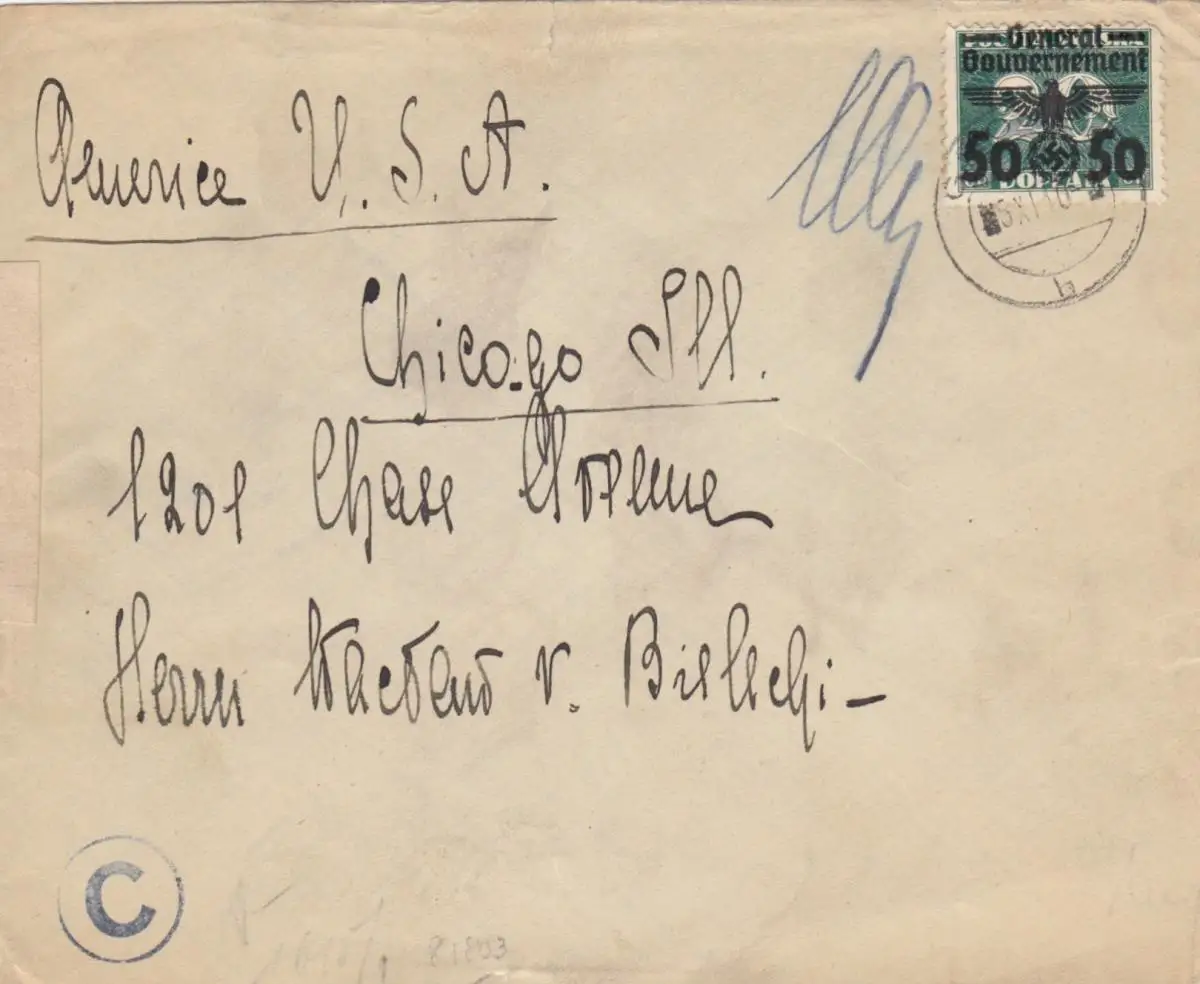 General
Gouvernement
50 50
DOPŁATA
5.XI.40
b
America U. S. A.
Chicago Ill.
1201 Chase Avenue
Herrn v. Bielecki
C
81803